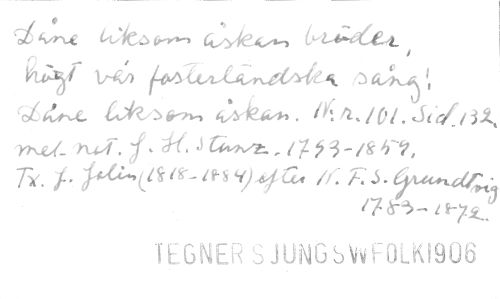 Dåne liksom åskan bröder,
högt vår fosterländska sång!
Dåne liksom åskan. N:r. 101. Sid. 132.
mel. not. J. H. Stunz. 1793-1859.
Tx. J. Jolin (1818-1884) efter N. F. S. Grundtvig
1783-1872.
TEGNER SJUNGSWFOLK1906